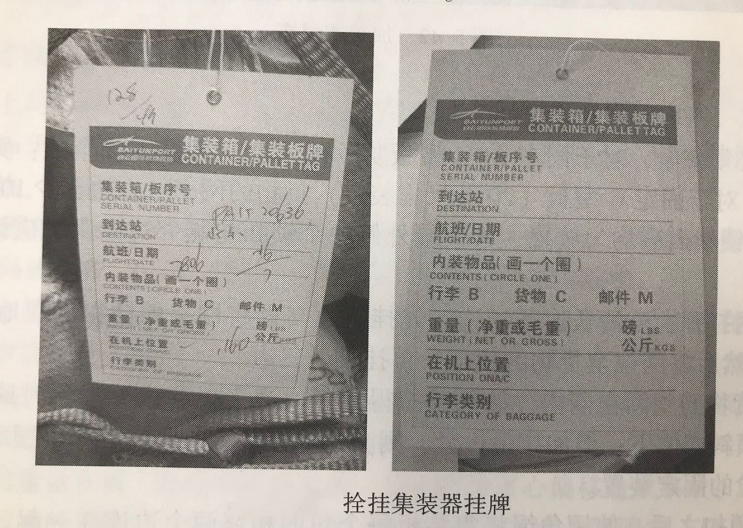 128
BAIYUNPORT
集装箱/集装板牌
CONTAINER/PALLET TAG
集装箱/板序号
CONTAINER/PALLET
SERIAL NUMBER
20636
到达站
DESTINATION
航班/日期
FLIGHT/DATE
内装物品(画一个圈)
CONTENTS(CIRCLE ONE)
行李 B 货物 C 邮件 M
重量(净重或毛重) 磅 LBS
公斤
在机上位置
160
行李类别
CATEGORY OF BAGGAGE
BAIYUNPORT
集装箱/集装板牌
CONTAINER/PALLET TAG
集装箱/板序号
CONTAINER/PALLET
SERIAL NUMBER
到达站
DESTINATION
航班/日期
FLIGHT/DATE
内装物品(画一个圈)
CONTENTS(CIRCLE ONE)
行李 B 货物 C 邮件 M
重量(净重或毛重) 磅 LBS
WEIGHT(NET OR GROSS) 公斤 KGS
在机上位置
POSITION ONA/C
行李类别
CATEGORY OF BAGGAGE
拴挂集装器挂牌